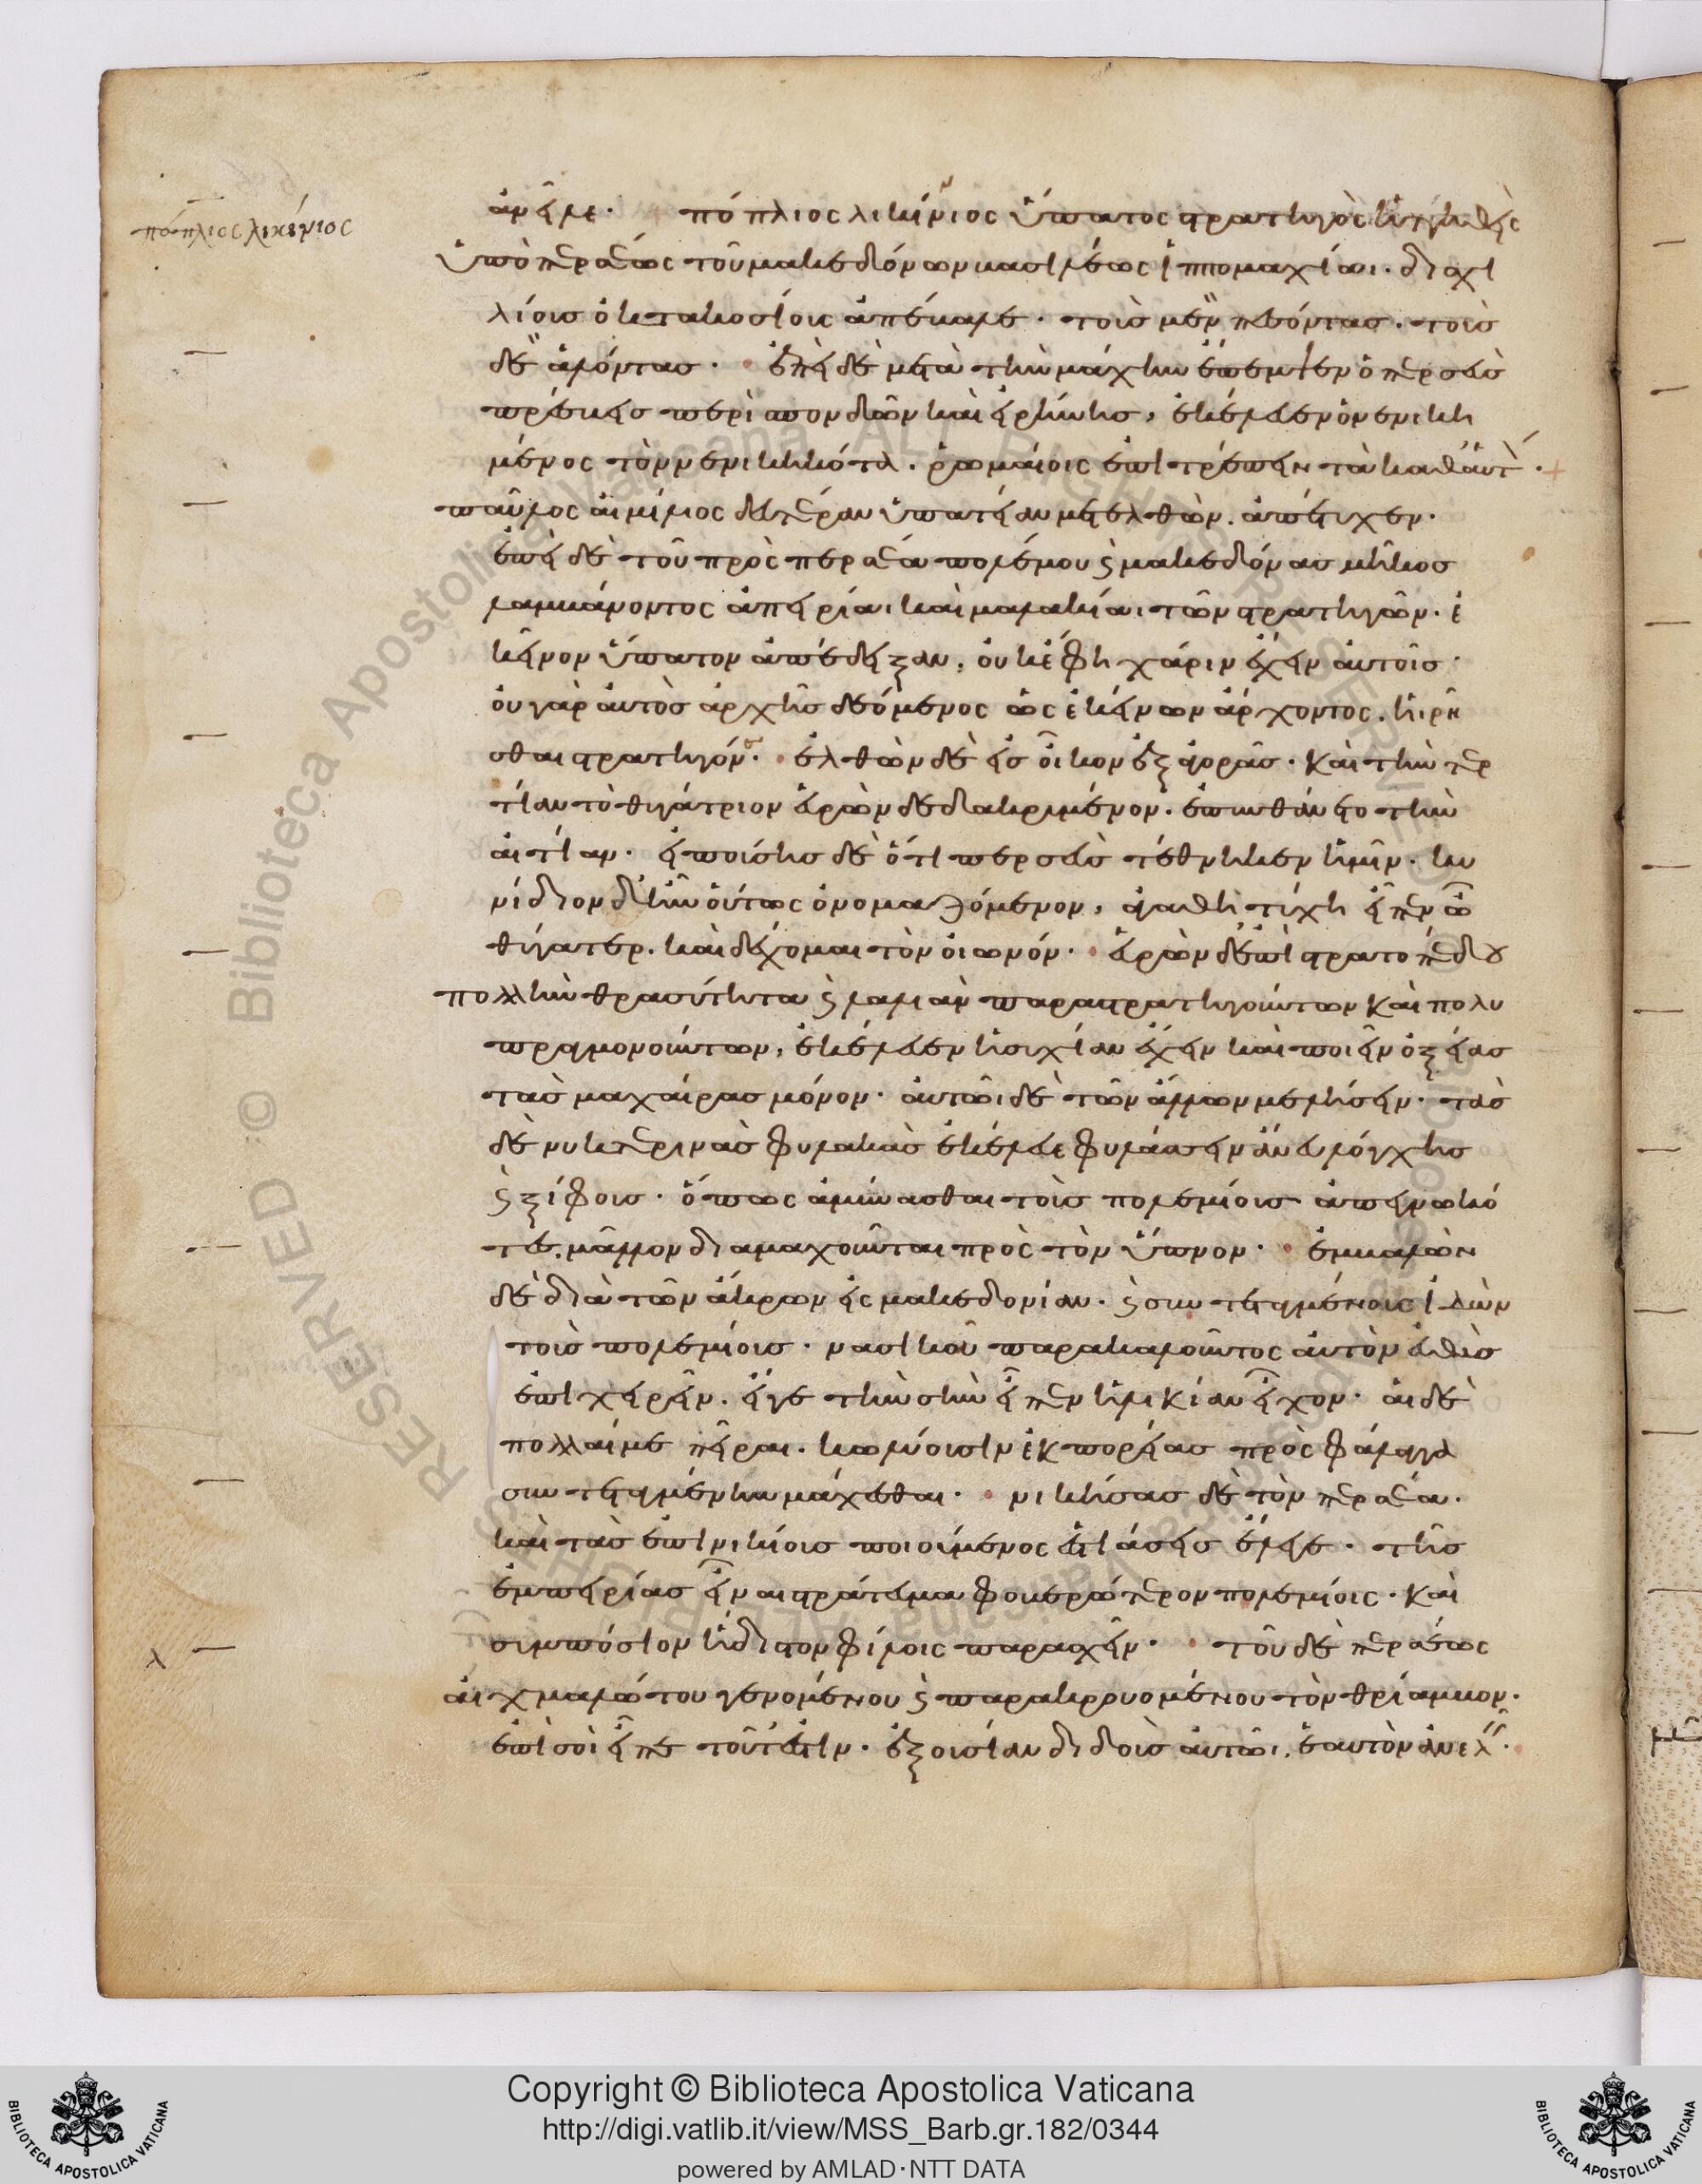 πόπλιος λικίνιος
ἀνεῖλε. πόπλιος λικίνιος ὕπατος στρατηγὸς ἡττηθεὶς
ὑπὸ περσέως τοῦ μακεδόνων βασιλέως ἱππομαχίαι. δισχι
λίοις ὀκτακοσίοις ἀπέβαλε. τοὺς μὲν πεσόντας. τοὺς
δὲ ἁλόντας. ἐπεὶ δὲ μετὰ τὴν μάχην ἔπεμψεν ὁ περσεὺς
πρέσβεις περὶ σπονδῶν καὶ εἰρήνης, ἐκέλευεν ὁ νενικη
μένος τὸν νενικηκότα. ῥωμαίοις ἐπιτρέπειν τὰ καθ' αὑτ
παῦλος αἰμίλιος δευτέραν ὑπατείαν μετελθὼν. ἀπέτυχεν.
ἐπεὶ δὲ τοῦ πρὸς περσέα πολέμου καὶ μακεδόνας μῆκος
λαμβάνοντος ἀπειρίαι καὶ μαλακίαι τῶν στρατηγῶν. ἐ
κεῖνον ὕπατον ἀπέδειξαν, οὐκ ἔφη χάριν ἔχειν αὐτοῖς.
οὐ γὰρ αὐτὸς ἀρχῆς δεόμενος ὡς ἐκείνων ἄρχοντος. ἡιρῆ
σθαι στρατηγός. ἐλθὼν δὲ εἰς οἶκον ἐξ ἀγορᾶς. καὶ τὴν τερ
τίαν τὸ θυγάτριον εὑρὼν δεδακρυμένον. ἐπυνθάνετο τὴν
αἰτίαν. εἰπούσης δὲ ὅτι περσεὺς τέθνηκεν ἡμῖν. κυ
νίδιον δ' ἦν οὕτως ὀνομαζόμενον, ἀγαθῆ τύχη εἶπεν ὦ
θύγατερ. καὶ δέχομαι τὸν οἰωνόν. εὑρὼν δ' ἐπὶ στρατοπέδου
πολλὴν θρασύτητα καὶ λαλιὰν παραστρατηγούντων καὶ πολυ
πραγμονούντων, ἐκέλευεν ἡσυχίαν ἔχειν καὶ ποιεῖν ὀξείας
τὰς μαχαίρας μόνον. αὐτῶι δὲ τῶν ἄλλων μελήσειν. τὰς
δὲ νυκτερινὰς φυλακὰς ἐκέλευε φυλάσσειν ἄνευ λόγχης
καὶ ξίφους. ὅπως ἀμύνασθαι τοὺς πολεμίους ἀπεγνωκό
τες. μᾶλλον διαμαχοῦνται πρὸς τὸν ὕπνον. ἐμβαλὼν
δὲ διὰ τῶν ἄκρων εἰς μακεδονίαν. καὶ συντεταγμένους ἰδὼν
τοὺς πολεμίους. νασικοῦ παρακαλοῦντος αὐτὸν εὐθὺς
ἐπιχειρεῖν. εἴγε τὴν σὴν εἶπεν ἡλικίαν εἶχον. αἱ δὲ
πολλαί με πεῖραι. κωλύουσιν ἐκ πορείας πρὸς φάλαγγα
συντεταγμένην μάχεσθαι. νικήσας δὲ τὸν περσέα.
καὶ τὰς ἐπινικίους ποιούμενος ἑστιάσεις ἔλεγε. τῆς
ἐμπειρίας εἶναι στράτευμα φοβερώτερον πολεμίοις. καὶ
συμπόσιον ἥδιστον φίλοις παρασχεῖν. τοῦ δὲ περσέως
αἰχμαλώτου γενομένου καὶ παρακρουομένου τὸν θρίαμβον.
ἐπὶ σοὶ εἶπε τοῦτ' ἐστίν. ἐξουσίαν διδοὺς αὐτῶι. ἑαυτὸν ἀνελ